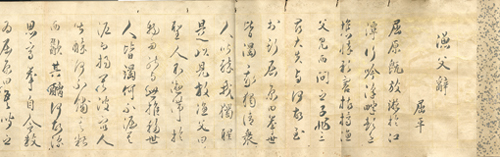 漁父辞
屈平
屈原既放游於江
潭行吟沢畔顔色
憔悴形容枯槁漁
父見而問之曰子非三
閭大夫与何故至
於斯屈原曰挙世
皆濁我独清衆
人皆酔我独醒
是以見放漁父曰
聖人不凝滞於
物而能与世推移世
人皆濁何不淈其
泥而揚其波衆人
皆酔何不餔其糟
而歠其醨何故深
思高挙自令放
為屈原曰吾聞之